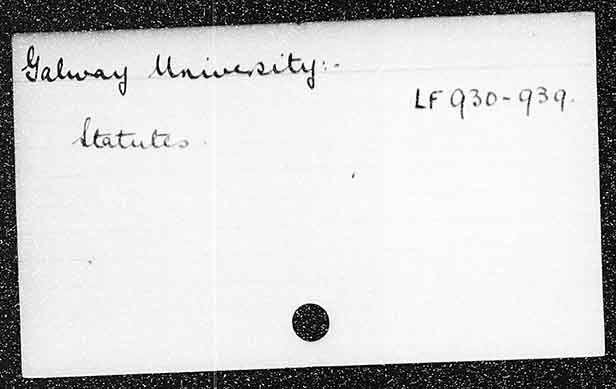 Galway University:-
LF 930-939.
Statutes.